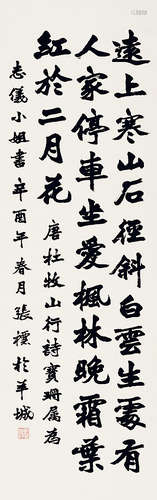 遠上寒山石徑斜白雲生處有
人家停車坐愛楓林晚霜葉
紅於二月花 唐杜牧山行詩寶珊屬為
志儀小姐書辛酉年春月張樸於羊城